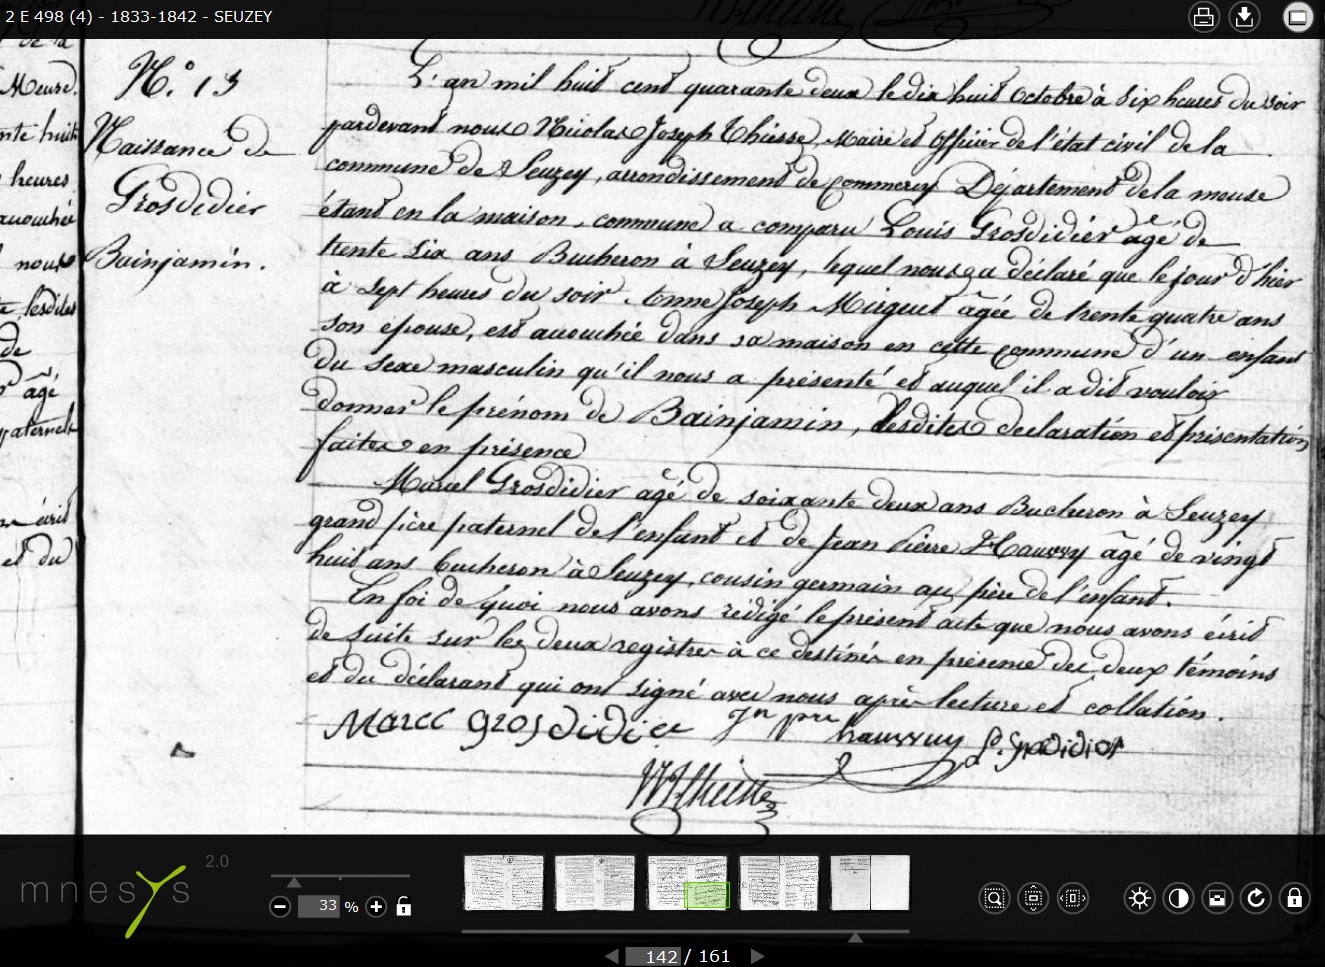 2 E 498 (4) - 1833-1842 - SEUZEY
N.° 13
Naissance de
Grosdidier
Bainjamin.
L'an mil huit cent quarante deux le dix huit Octobre à six heures du soir
pardevant nous Nicolas Joseph Thiesse, Maire et Officier de l'état civil de la
commune de Seuzey, arrondissement de Commercy Département de la meuse
étant en la maison commune a comparu Louis Grosdidier agé de
trente six ans Bucheron à Seuzey, lequel nous a déclaré que le jour d'hier
à sept heures du soir Anne Joseph Miguet âgée de trente quatre ans
son épouse, est accouchée dans sa maison en cette commune d'un enfant
du sexe masculin qu'il nous a présenté et auquel il a dit vouloir
donner le prénom de Bainjamin, lesdites déclaration et présentation
faites en présence
Marcel Grosdidier agé de soixante deux ans Bucheron à Seuzey
grand père paternel de l'enfant et de Jean Pierre Hauvuy âgé de vingt
huit ans bucheron à Seuzey, cousin germain au père de l'enfant.
En foi de quoi nous avons rédigé le présent acte que nous avons écrit
de suite sur les deux registres à ce destinés en présence des deux témoins
et du déclarant qui ont signé avec nous après lecture et collation.
Marcc grosdidier Jn pre hauvuy L. Grosdidier
de la
Meuse.
nte huit
heures
accouchée
nous
lesdites
de
agé
paternel
écrit
et du
mnesys 2.0
33 %
142 / 161